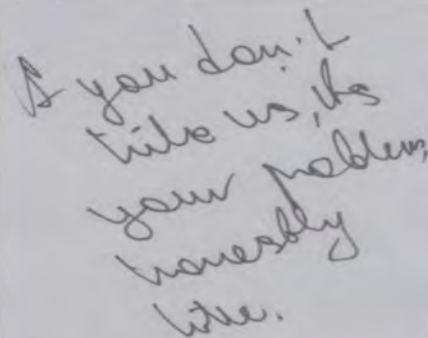 If you don't
like us, its
your problem,
honestly
like.